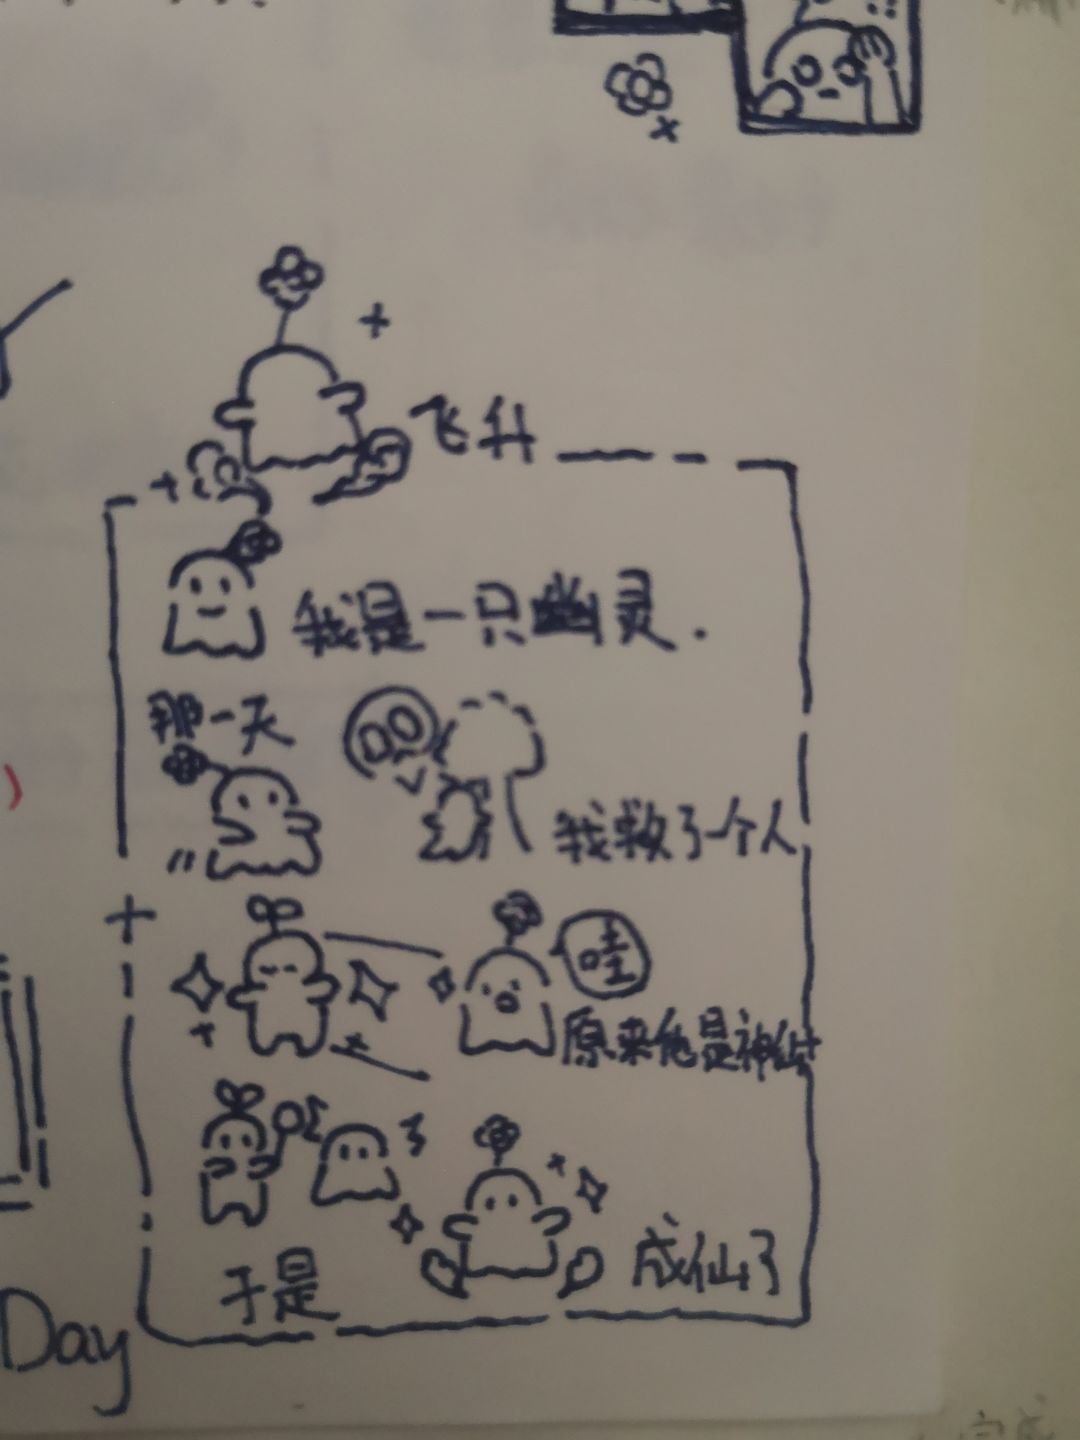 飞升
我是一只幽灵.
那一天
我救了一个人
哇
原来他是神仙
于是
成仙了
Day